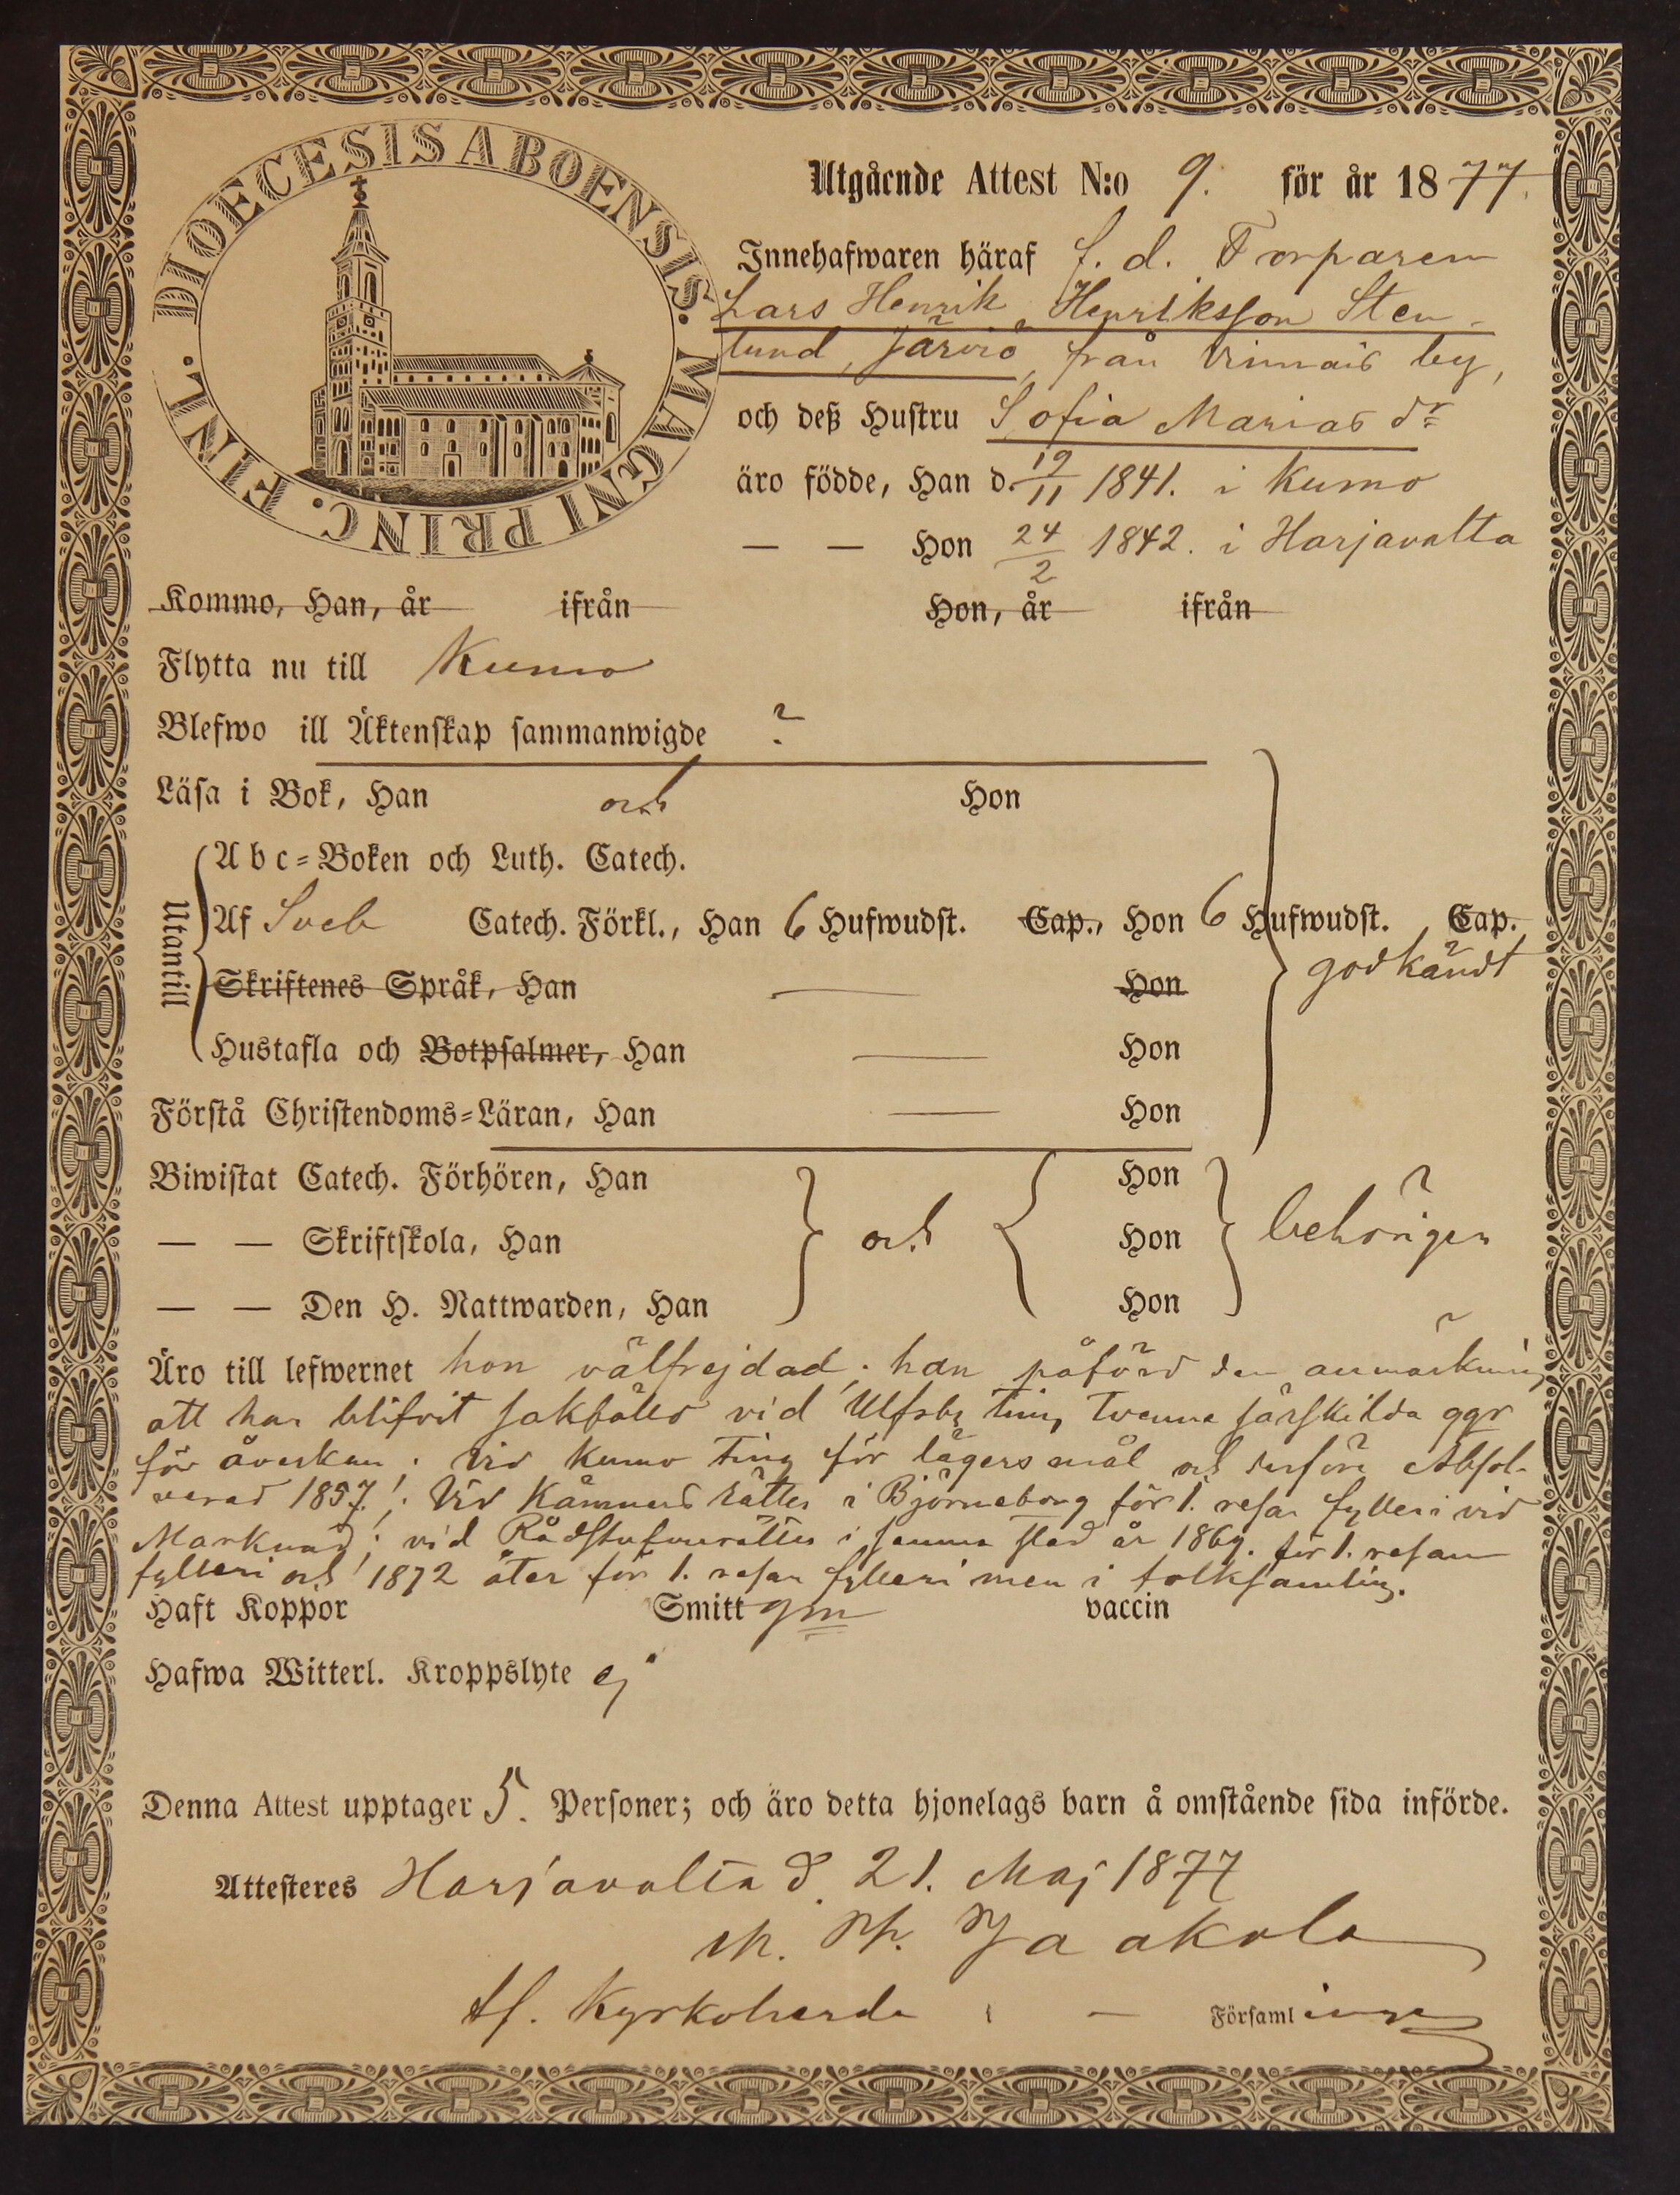 DIOECESIS ABOENSIS. MAGNI PRINC. FINL.
Utgående Attest N:o 9. för år 1877.
Innehafwaren häraf f. d. Torparen
Lars Henrik Henriksson Sten-
lund, Järvio, från Vinnais by,
och deß Hustru Sofia Marias dr
äro födde, Han d. 19/11 1841. i Kumo
— — Hon 24/2 1842. i Harjavalta
Kommo, Han, år ifrån Hon, år ifrån
Flytta nu till Kumo
Blefwo ill Äktenskap sammanwigde ?
Läsa i Bok, Han och Hon
Utantill
Abc-Boken och Luth. Catech.
Af Sveb Catech. Förkl., Han 6 Hufwudst. Cap., Hon 6 Hufwudst. Cap.
godkändt
Skriftenes Språk, Han — Hon
Hustafla och Botpsalmer, Han — Hon
Förstå Christendoms-Läran, Han — Hon
Biwistat Catech. Förhören, Han Hon
— — Skriftskola, Han och Hon behörigen
— — Den H. Nattwarden, Han Hon
Äro till lefwernet hon välfrejdad; han påförd den anmärkning
att har blifvit sakfälld vid Ulfsby Ting tvenne särskilda ggr
för åverkan; vid Kumo Ting för lägersmål och derföre Absol-
verad 1857; Vid Kämners rätten i Björneborg för 1. resan fylleri vid
Marknad; vid Rådstufvurätten i samma stad år 1869. för 1. resan
fylleri och 1872 åter för 1. resan fylleri men i folksamling.
Haft Koppor Smitt gm vaccin
Hafwa Witterl. Kroppslyte ej
Denna Attest upptager 5. Personer; och äro detta hjonelags barn å omstående sida införde.
Attesteres Harjavalta d. 21. Maj 1877
Jaakola
tf. Kyrkoherde i — Församlingen